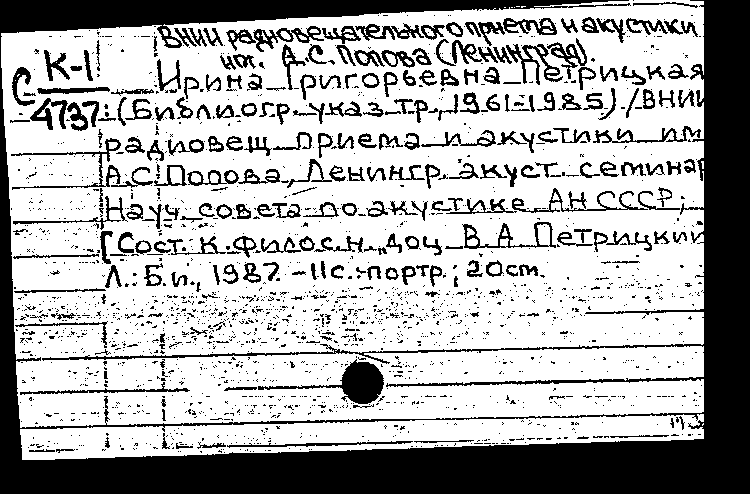 ВНИИ радиовещательного приема и акустики
им. А.С. Попова (Ленинград).
С К-1
4737
Ирина Григорьевна Петрицкая
: (Библиогр. указ. тр., 1961-1985) / ВНИИ
радиовещ. приема и акустики им
А.С. Попова, Ленингр. акуст. семинар
Науч. совета по акустике АН СССР;
[Сост. к. филос. н., доц. В. А. Петрицкий
Л.: Б.и., 1987. - 11с.: портр.; 20см.